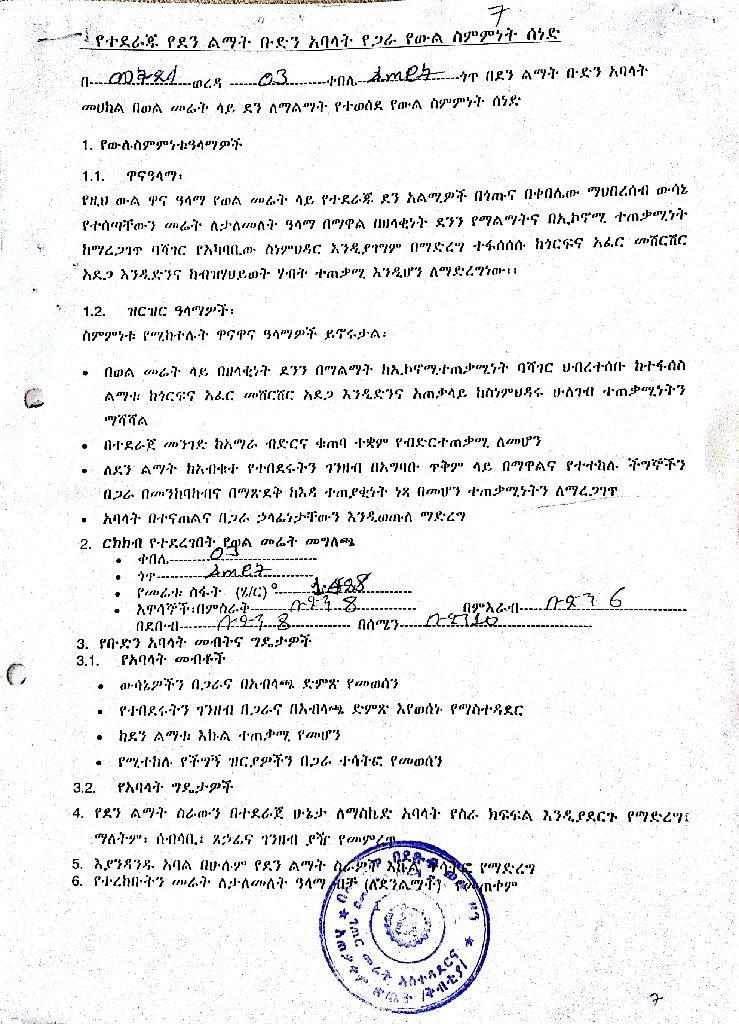 7
የተደራጁ የደን ልማት ቡድን አባላት የጋራ የውል ስምምነት ሰነድ
በ ወረዳ 03 ቀበሌ ጎጥ በደን ልማት ቡድን አባላት
መሀከል በወል መሬት ላይ ደን ለማልማት የተወሰደ የውል ስምምነት ሰነድ
1. የውሉስምምነቱዓላማዎች
1.1. ዋናዓላማ፡
የዚህ ውል ዋና ዓላማ የወል መሬት ላይ የተደራጁ ደን አልሚዎች በጎጡና በቀበሌው ማህበረሰብ ውሳኔ
የተሰጣቸውን መሬት ለታለመለት ዓላማ በማዋል በዘላቂነት ደንን የማልማትና በኢኮኖሚ ተጠቃሚነት
ከማረጋገጥ ባሻገር የአካባቢው ስነምህዳር እንዲያገግም በማድረግ ተፋሰሱ ከጎርፍና አፈር መሸርሸር
አደጋ እንዲድንና ከብዝሃህይወት ሃብት ተጠቃሚ እንዲሆን ለማድረግነው፡፡
1.2. ዝርዝር ዓላማዎች፡
ስምምነቱ የሚከተሉት ዋናዋና ዓላማዎች ይኖሩታል፡
• በወል መሬት ላይ በዘላቂነት ደንን በማልማት ከኢኮኖሚተጠቃሚነት ባሻገር ህብረተሰቡ ከተፋሰስ
ልማቱ ከጎርፍና አፈር መሸርሸር አደጋ እንዲድንና አጠቃላይ ከስነምህዳሩ ሁለገብ ተጠቃሚነትን
ማሻሻል
• በተደራጀ መንገድ ከአማራ ብድርና ቁጠባ ተቋም የብድርተጠቃሚ ለመሆን
• ለደን ልማት ከአብቁተ የተበደሩትን ገንዘብ በአግባቡ ጥቅም ላይ በማዋልና የተተከሉ ችግኞችን
በጋራ በመንከባከብና በማጽደቅ ከእዳ ተጠያቂነት ነጻ በመሆን ተጠቃሚነትን ለማረጋገጥ
• አባላት በተናጠልና በጋራ ኃላፊነታቸውን እንዲወጡ ማድረግ
2. ርክክብ የተደረገበት የወል መሬት መግለጫ
• ቀበሌ 03
• ጎጥ
• የመሬቱ ስፋት (ሄ/ር)
• አዋሳኞች፡በምስራቅ ቡድን 8 በምእራብ ቡድን 6
በደቡብ ቡድን 8 በሰሜን ቡድን 10
3. የቡድን አባላት መብትና ግዴታዎች
3.1. የአባላት መብቶች
• ውሳኔዎችን በጋራና በአብላጫ ድምጽ የመወሰን
• የተበደሩትን ገንዘብ በጋራና በአብላጫ ድምጽ እየወሰኑ የማስተዳደር
• ከደን ልማቱ እኩል ተጠቃሚ የመሆን
• የሚተከሉ የችግኝ ዝርያዎችን በጋራ ተሳትፎ የመወሰን
3.2. የአባላት ግዴታዎች
4. የደን ልማት ስራውን በተደራጀ ሁኔታ ለማስኬድ አባላት የስራ ክፍፍል እንዲያደርጉ የማድረግ፤
ማለትም፡ ሰብሳቢ፤ ጸኃፊና ገንዘብ ያዥ የመምረጥ
5. እያንዳንዱ አባል በሁሉም የደን ልማት ስራዎች እኩል ተሳትፎ የማድረግ
6. የተረከቡትን መሬት ለታለመለት ዓላማ ብቻ (ለደንልማት) የመጠቀም
7